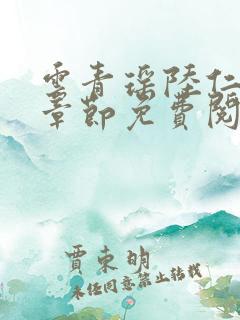 云青瑶陆仁
章节免费阅
贾东明
未经同意禁止转载